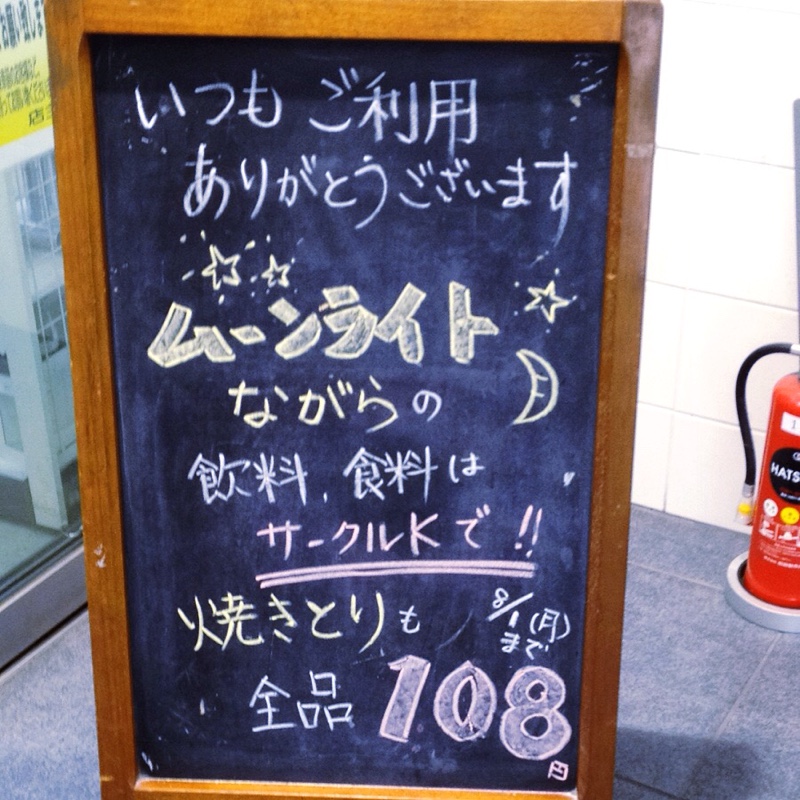 いつもご利用
ありがとうございます
ムーンライト
ながらの
飲料、食料は
サークルKで!!
焼きとりも
8/1(月)
まで
全品108
円
お願い致しま
店
HATS